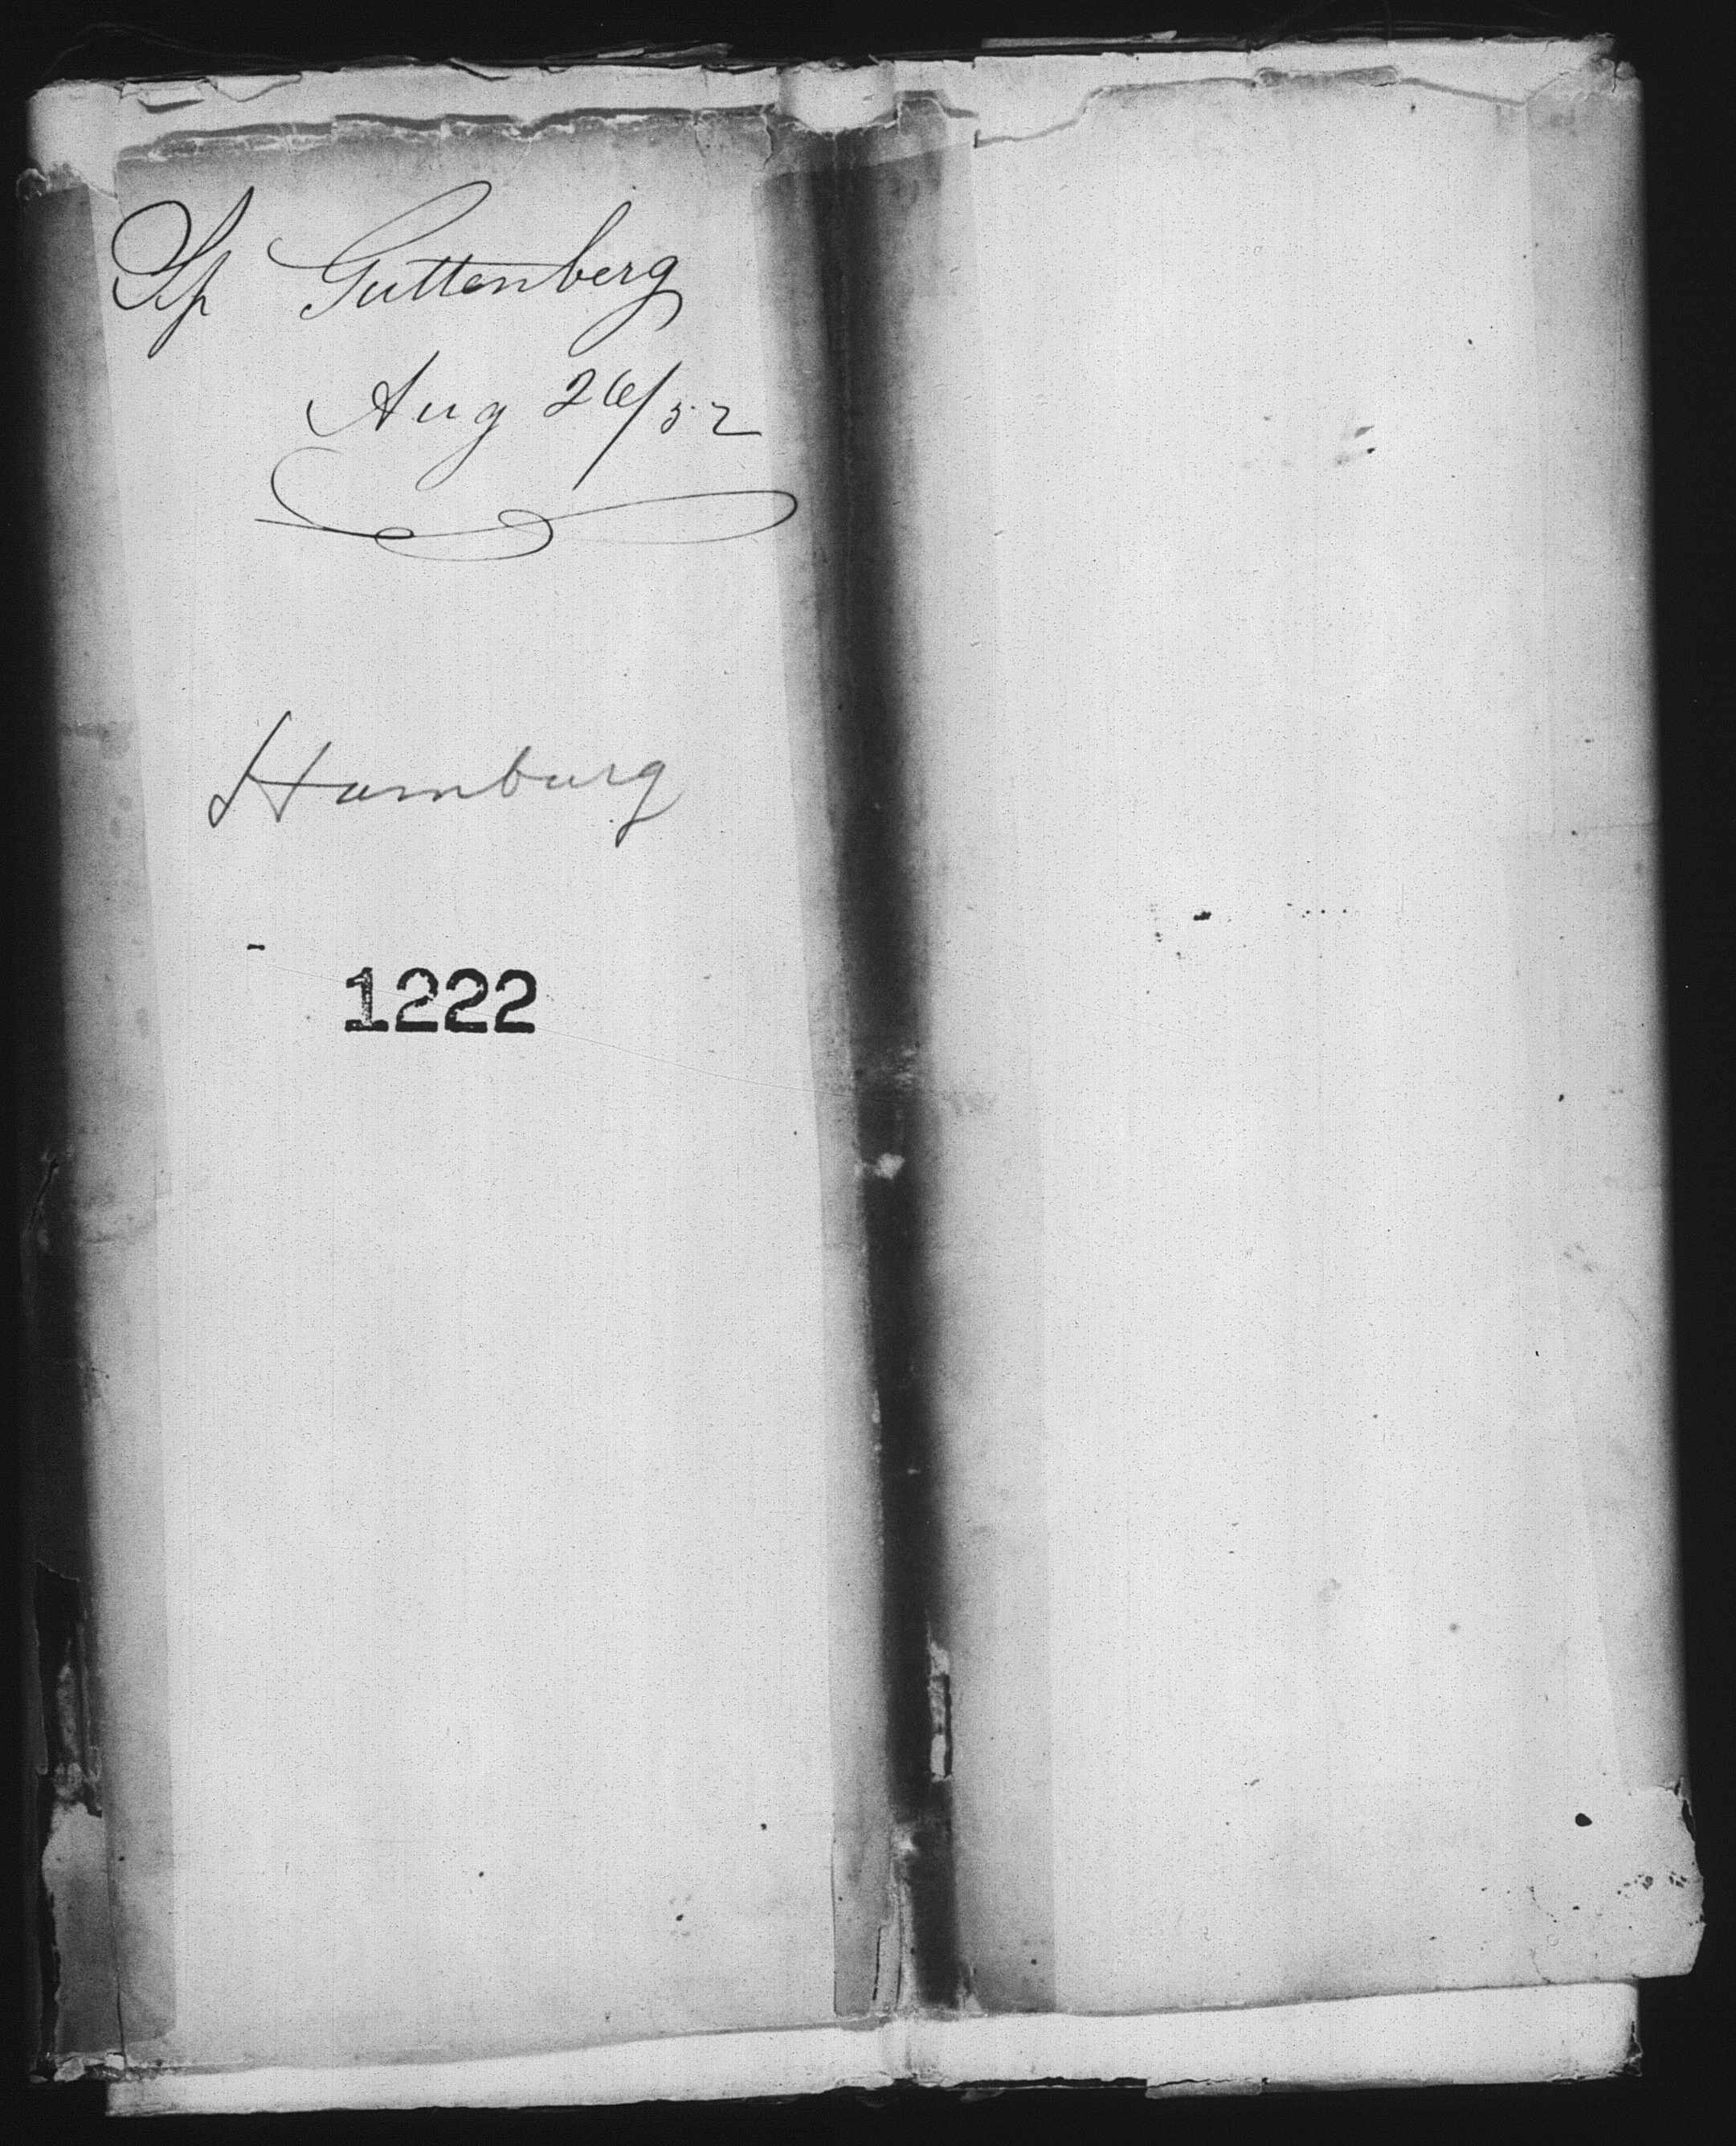 Sp Guttenberg
Aug 26/52
Hamburg
1222